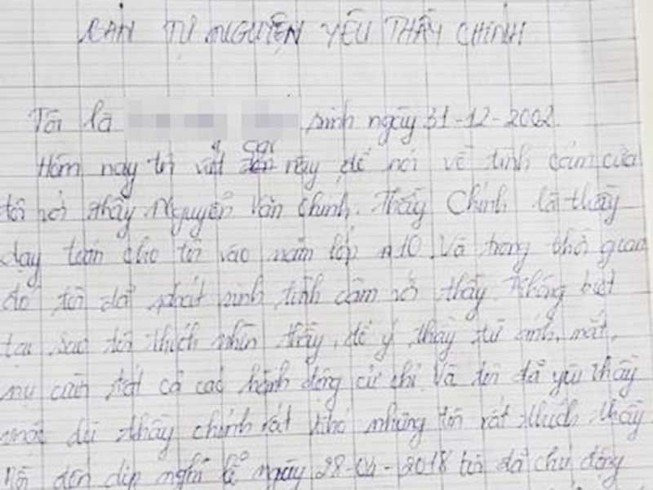 BẢN TỰ NGUYỆN YÊU THẦY CHÍNH
Tôi là sinh ngày 31-12-2002.
Hôm nay tôi viết cái này để nói về tình cảm của
tôi với thầy Nguyễn Văn Chính. Thầy Chính là thầy
dạy toán cho tôi vào năm lớp 10. Và trong thời gian
đó tôi đã phát sinh tình cảm với thầy. Không biết
tại sao tôi thích nhìn thầy, để ý thầy từ ánh mắt,
nụ cười tất cả các hành động cử chỉ và tôi đã yêu thầy
mặc dù thầy chính rất khó nhưng tôi rất thích thầy
đến dịp nghỉ lễ ngày 28-04-2018 tôi đã chủ động